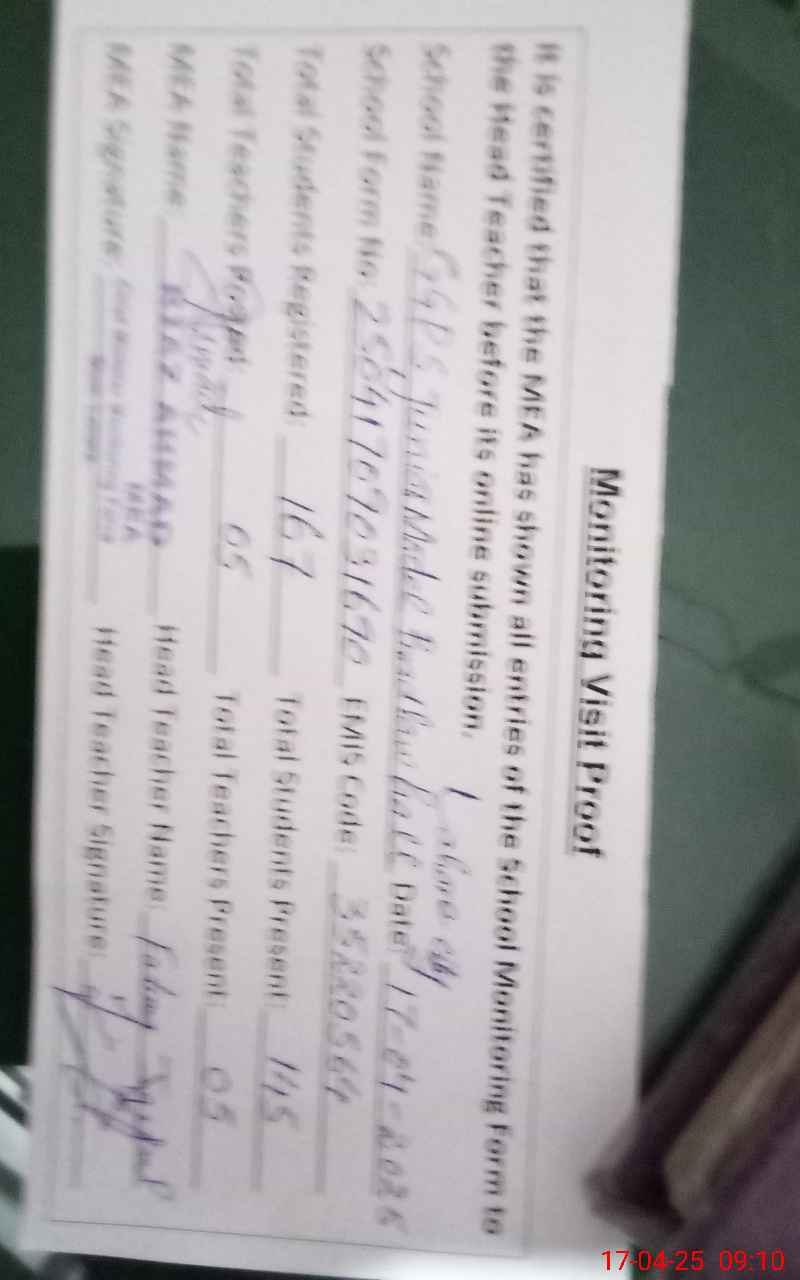 Monitoring Visit Proof
It is certified that the MEA has shown all entries of the School Monitoring Form to
the Head Teacher before its online submission.
Lahore city
School Name: GGPS Junior Model Date: 17-04-2025
School Form No: EMIS Code: 35220564
Total Students Registered: 167 Total Students Present: 145
Total Teachers 05 Total Teachers Present: 05
MEA Name: RIAZ AHMAD Head Teacher Name:
MEA
MEA Signature: Head Teacher Signature:
17-04-25 09:10